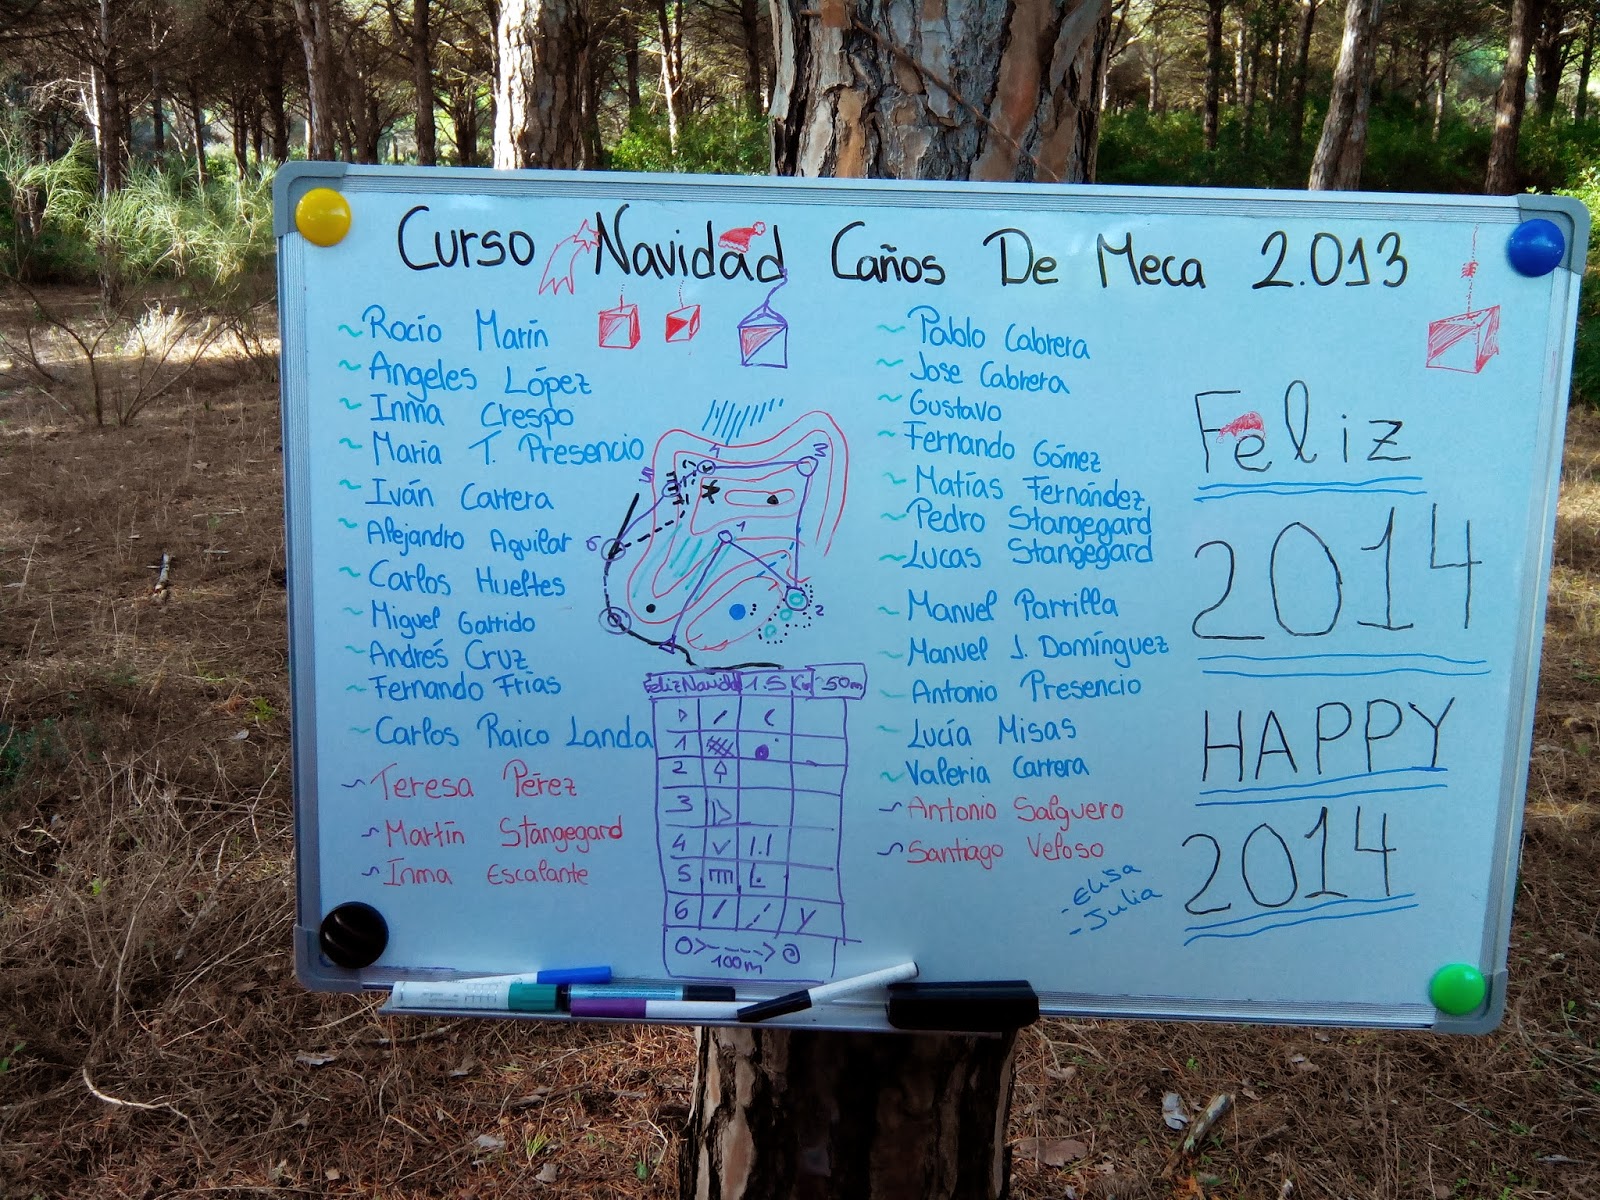 Curso Navidad Caños De Meca 2.013
~ Rocío Marín
~ Angeles López
~ Inma Crespo
~ María T. Presencio
~ Iván Carrera
~ Alejandro Aguilar
~ Carlos Hueltes
~ Miguel Garrido
~ Andrés Cruz
~ Fernando Frías
~ Carlos Raico Landa
~ Teresa Pérez
~ Martín Stangegard
~ Inma Escalante
1
3
5
1
6
2
Feliz Navidad 1.5 Km 50m
1
2
3
4 1.1
5
6
100m
~ Pablo Cabrera
~ Jose Cabrera
~ Gustavo
~ Fernando Gómez
~ Matías Fernández
~ Pedro Stangegard
~ Lucas Stangegard
~ Manuel Parrilla
~ Manuel J. Domínguez
~ Antonio Presencio
~ Lucía Misas
~ Valeria Carrera
~ Antonio Salguero
~ Santiago Veloso
- Elisa
- Julia
Feliz
2014
HAPPY
2014